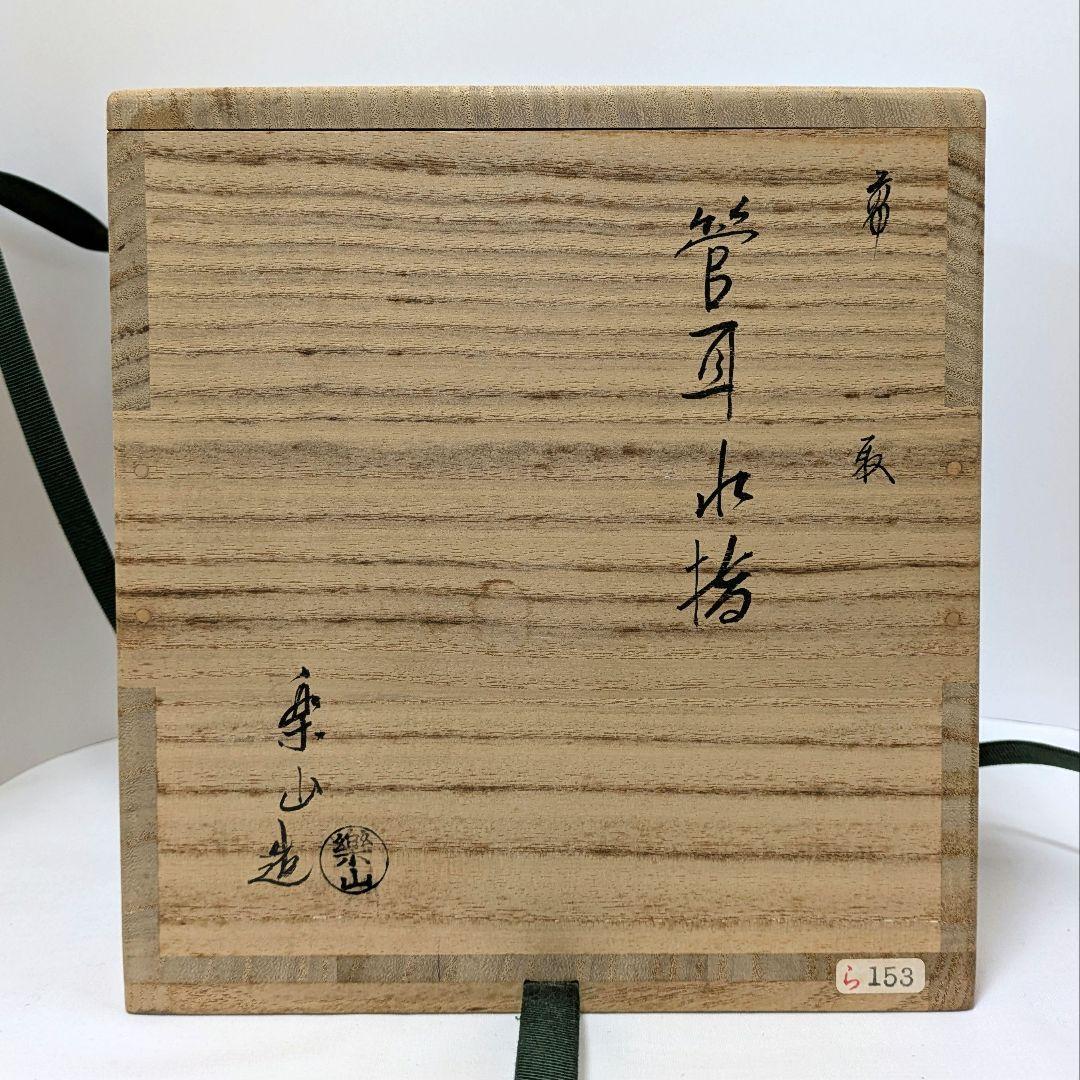 萌
取
管耳水指
楽山造
樂山
ら153